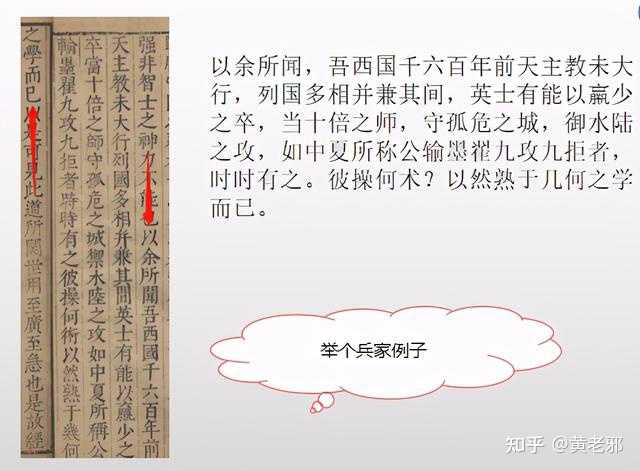 强非智士之神力不能也以余所聞吾西國千六百年前
天主教未大行列國多相并兼其間英士有能以羸少之
卒當十倍之師守孤危之城禦水陸之攻如中夏所稱公
輸墨翟九攻九拒者時時有之彼操何術以然熟于幾何
之學而已以是可見此道所関世用至廣至急也是故經
以余所闻，吾西国千六百年前天主教未大
行，列国多相并兼其间，英士有能以羸少
之卒，当十倍之师，守孤危之城，御水陆
之攻，如中夏所称公输墨翟九攻九拒者，
时时有之。彼操何术？以然熟于几何之学
而已。
举个兵家例子
知乎 @黄老邪